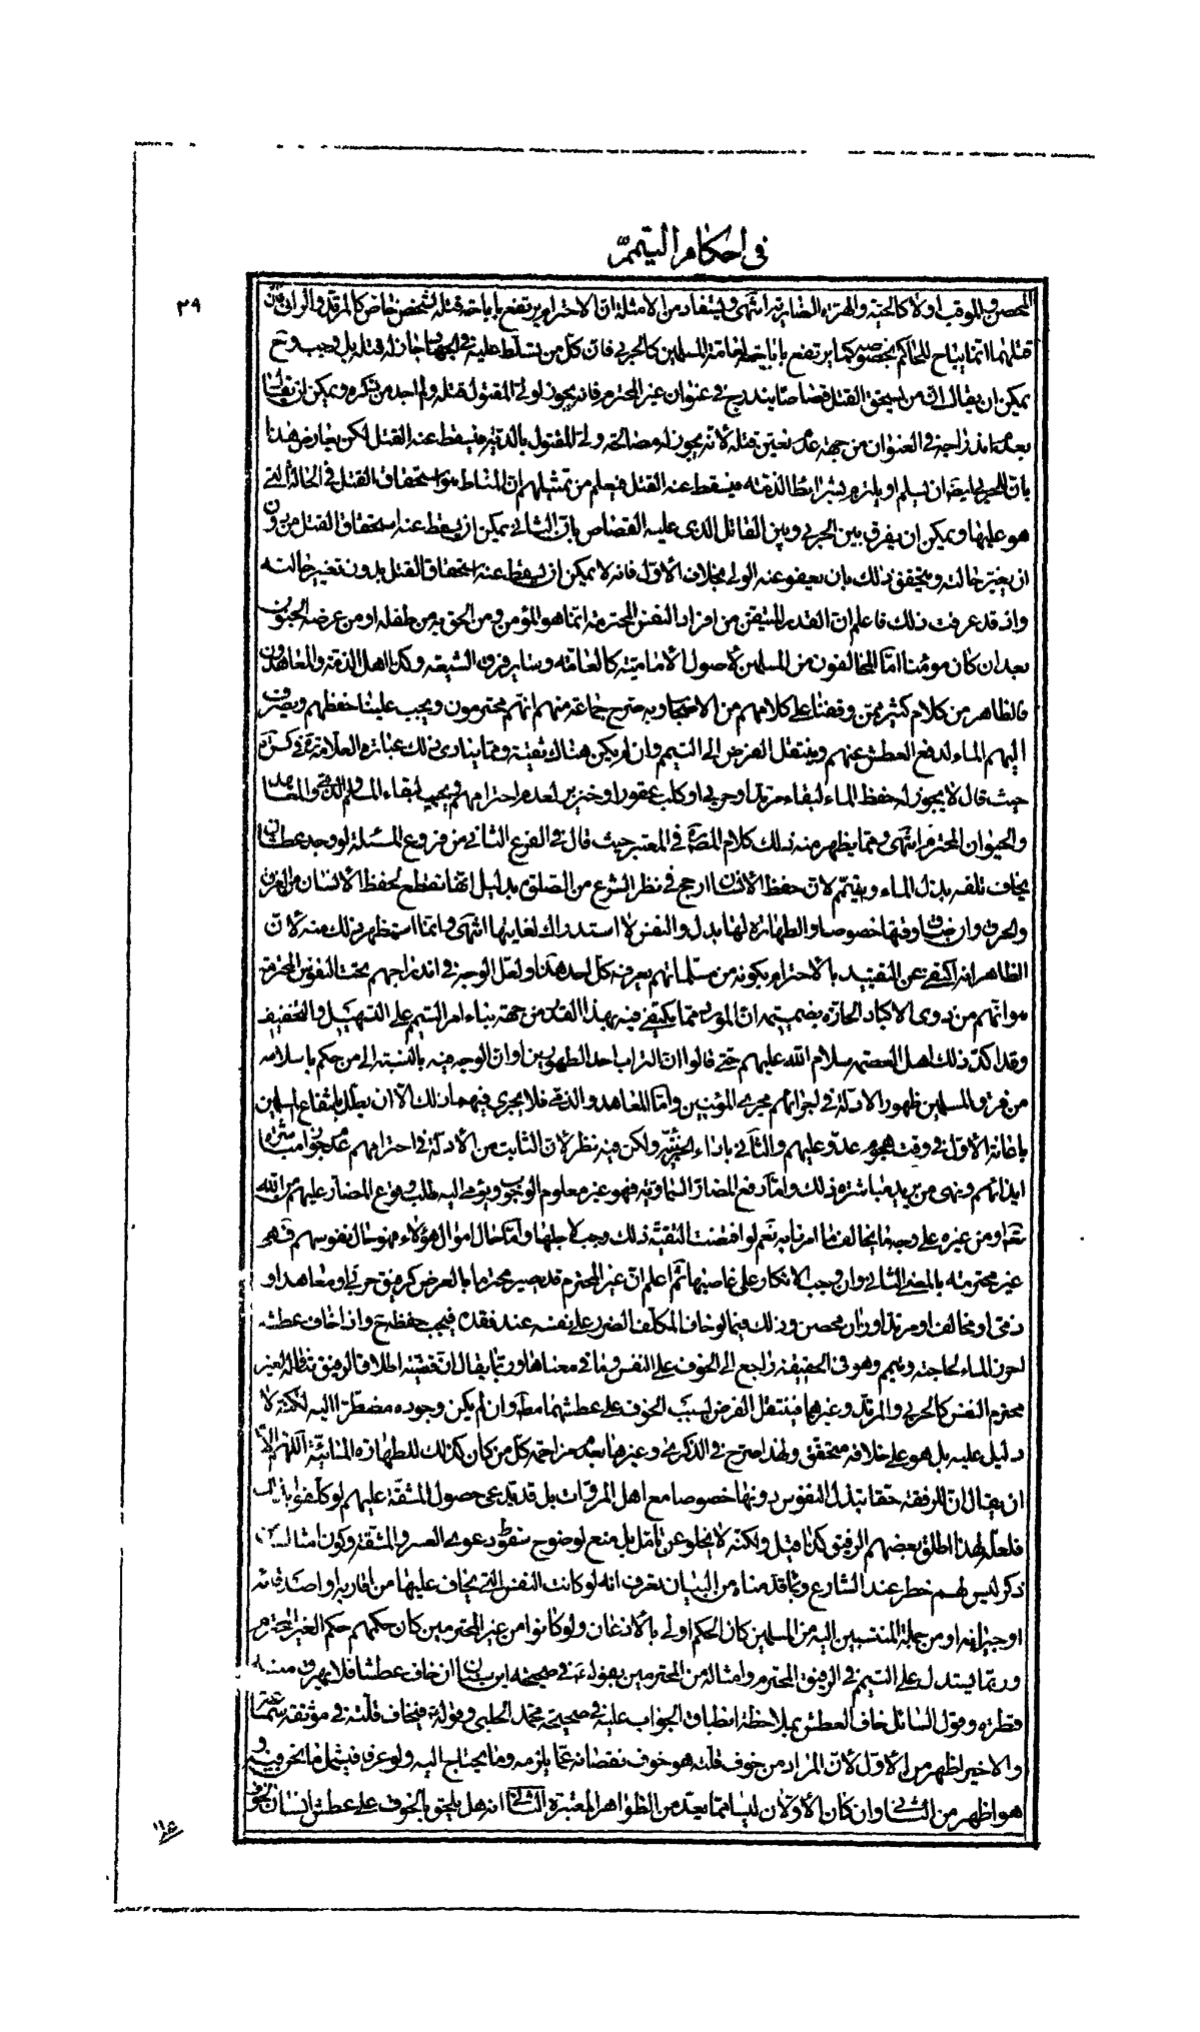 في احكام التيمم
٣٩
المحصن والموقب اولا كالحية والهرة الضارية انتهى ويستفاد من الامثلة ان الاحترام يرتفع باباحة قتله لشخص خاص كالمرتد والزاني فان
قتلهما انما يباح للحاكم بخصوصه كما يرتفع باباحته لعامة المسلمين كالحربي فان كل من تسلط عليه في الجهاد جاز له قتله بل وجب وح
يمكن ان يقال ان من استحق القتل قصاصا يندرج في عنوان غير المحترم فانه يجوز لولي المقتول قتله ولم اجد من ذكره ويمكن ان يقال
بعدم اندراجه في العنوان من جهة عدم تعين قتله لانه يجوز له مصالحة ولي المقتول بالدية فيسقط عنه القتل لكن يعارض هذا
بان الحربي ايضا له ان يسلم او يلتزم بشرائط الذمة فيسقط عنه القتل فيعلم من تمثيلهم ان المناط هو استحقاق القتل في الحالة التي
هو عليها ويمكن ان يفرق بين الحربي وبين القاتل الذي عليه القصاص بان الثاني يمكن ان يسقط عنه استحقاق القتل من دون
ان يغير حالته ويتحقق ذلك بان يعفو عنه الولي بخلاف الاول فانه لا يمكن ان يسقط عنه استحقاق القتل بدون تغيير حالته
واذ قد عرفت ذلك فاعلم ان القدر المتيقن من افراد النفس المحترمة انما هو المؤمن ومن الحق به من طفله او من عرضه الجنون
بعد ان كان مؤمنا اما المخالفون من المسلمين لاصول الامامية كالعامة وساير فرق الشيعة وكذا اهل الذمة والمعاهدون
فالظاهر من كلام كثير ممن وقفنا على كلامهم من الاصحاب وبه صرح جماعة منهم انهم محترمون ويجب علينا حفظهم ويصرف
اليهم الماء لدفع العطش عنهم وينتقل الفرض الى التيمم وان لم يكن هناك تقية ومما ينادي بذلك عبارة العلامة في كرة
حيث قال لا يجوز له حفظ الماء لبقاء مرتد او حربي او كلب عقور او خنزير لعدم احترامهم ويجب لبقاء المسلم والذمي والمعاهد
والحيوان المحترم انتهى ومما يظهر منه ذلك كلام المصنف في المعتبر حيث قال في الفرع الثاني من فروع المسئلة لو وجد عطشان
يخاف تلفه بذل الماء ويتيمم لان حفظ الانسان ارجح في نظر الشرع من الصلوة بدليل انها تقطع لحفظ الانسان من الغرق
والحرق وان ضاق وقتها خصوصا والطهارة لها بدل والنفس لا استدراك لغايتها انتهى وانما استظهر ذلك منه لان
الظاهر انه اكتفى عن التقييد بالاحترام بكونه من مسلماتهم يعرفه كل احد هذا ولعل الوجه في اندراجهم تحت النفوس المحترمة
هو انهم من ذوي الاكباد الحارة بضميمة ان المؤدى مما يكتفى فيه بهذا القدر من جهة بناء امر التيمم على التسهيل والتخفيف
وقد اكد ذلك اهل العصمة سلام الله عليهم حتى قالوا ان التراب احد الطهورين او ان الوجه فيه بالنسبة الى من حكم باسلامه
من فرق المسلمين ظهور الادلة في اجرائهم مجرى المؤمنين واما المعاهد والذمي فلا يجري فيهما ذلك الا ان يعلل بانتفاع المسلمين
باعانة الاول في وقت هجوم عدو عليهم والثاني باداء الجزية ولكن فيه نظر لان الثابت من الادلة في احترامهم عدم جواز مباشرة
ايذائهم ونهى من يريد مباشرة ذلك واما دفع المضار السماوية فهو غير معلوم الوجوب ويؤمي اليه طلب وقوع المضار عليهم من الله
تعالى او من غيره على وجه ما يخالف ما امرنا به نعم لو اقتضت التقية ذلك وجب لاجلها واما حال اموال هؤلاء فهو حال نفوسهم فهي
غير محترمة بالمعنى الثاني وان وجب الانكار على غاصبها ثم اعلم ان غير المحترم قد يصير محترما بالعرض كرفيق حربي او معاهد او
ذمي او مخالف او مرتد او زان محصن وذلك فيما لو خاف المكلف الضرر على نفسه عند فقده فيجب حفظه ح واذا خاف عطشه
احرز الماء لحاجته وتيمم وهو في الحقيقة راجع الى الخوف على النفس وما في معناها وربما يقال ان قضية اطلاق الرفيق تناوله لغير
محترم النفس كالحربي والمرتد وغيرهما فينتقل الفرض بسبب الخوف على عطشهما مطلقا وان لم يكن وجوده مضطرا اليه لكنه لا
دليل عليه بل هو على خلافه متحقق ولهذا صرح في الذكرى وغيرها بعدم مزاحمة كل من كان كذلك للطهارة المائية اللهم الا
ان يقال ان للرفقة حقا تبذل النفوس دونها خصوصا مع اهل المروات بل قد يدعى حصول المشقة عليهم لو كلفوا بذلك
فلعله لهذا اطلق بعضهم الرفيق كذا قيل ولكنه لا يخلو عن تأمل بل منع لوضوح سقوط دعوى العسر والمشقة وكون امثال من
ذكر ليس لهم خطر عند الشارع وبما قدمناه من البيان تعرف انه لو كانت النفس التي يخاف عليها من اقاربه او اصدقائه
او جيرانه او من جملة المنتسبين اليه من المسلمين كان الحكم اولى بالاذعان ولو كانوا من غير المحترمين كان حكمهم حكم الغير المحترم
وربما يستدل على التيمم في الرفيق المحترم وامثاله من المحترمين بقوله ع في صحيحة ابن سنان ان خاف عطشا فلا يهرق منه
قطرة وقول السائل خاف العطش بملاحظة انطباق الجواب عليه في صحيحة محمد الحلبي وقوله فيخاف قلته في موثقة سماعة
والاخير اظهر من الاول لان المراد من خوف قلته هو خوف نقصانه عما يلزمه وما يحتاج اليه ولو عرفا فيشمل ما نحن فيه و
هو اظهر من الثاني وان كان الاولان ليسا مما يعد من الظواهر المعتبرة الثاني انه هل يلحق بالخوف على عطش انسان الخوف